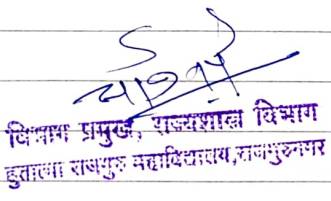 विभाग प्रमुख, राज्यशास्त्र विभाग
हुतात्मा राजगुरु महाविद्यालय,राजगुरुनगर